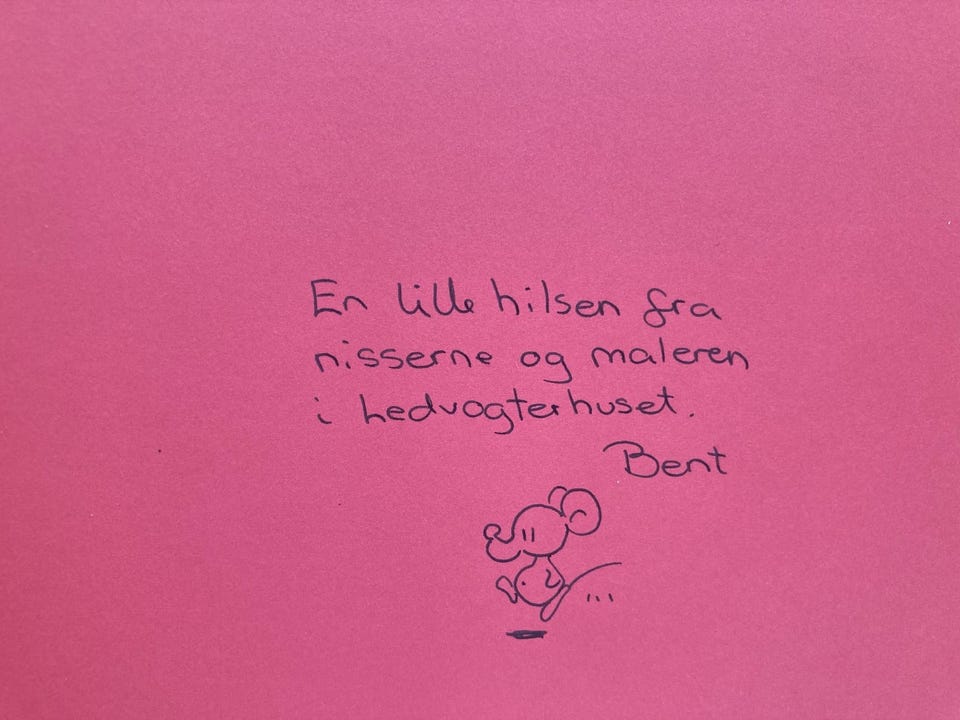 En lille hilsen fra
nisserne og maleren
i hedvogterhuset.
Bent